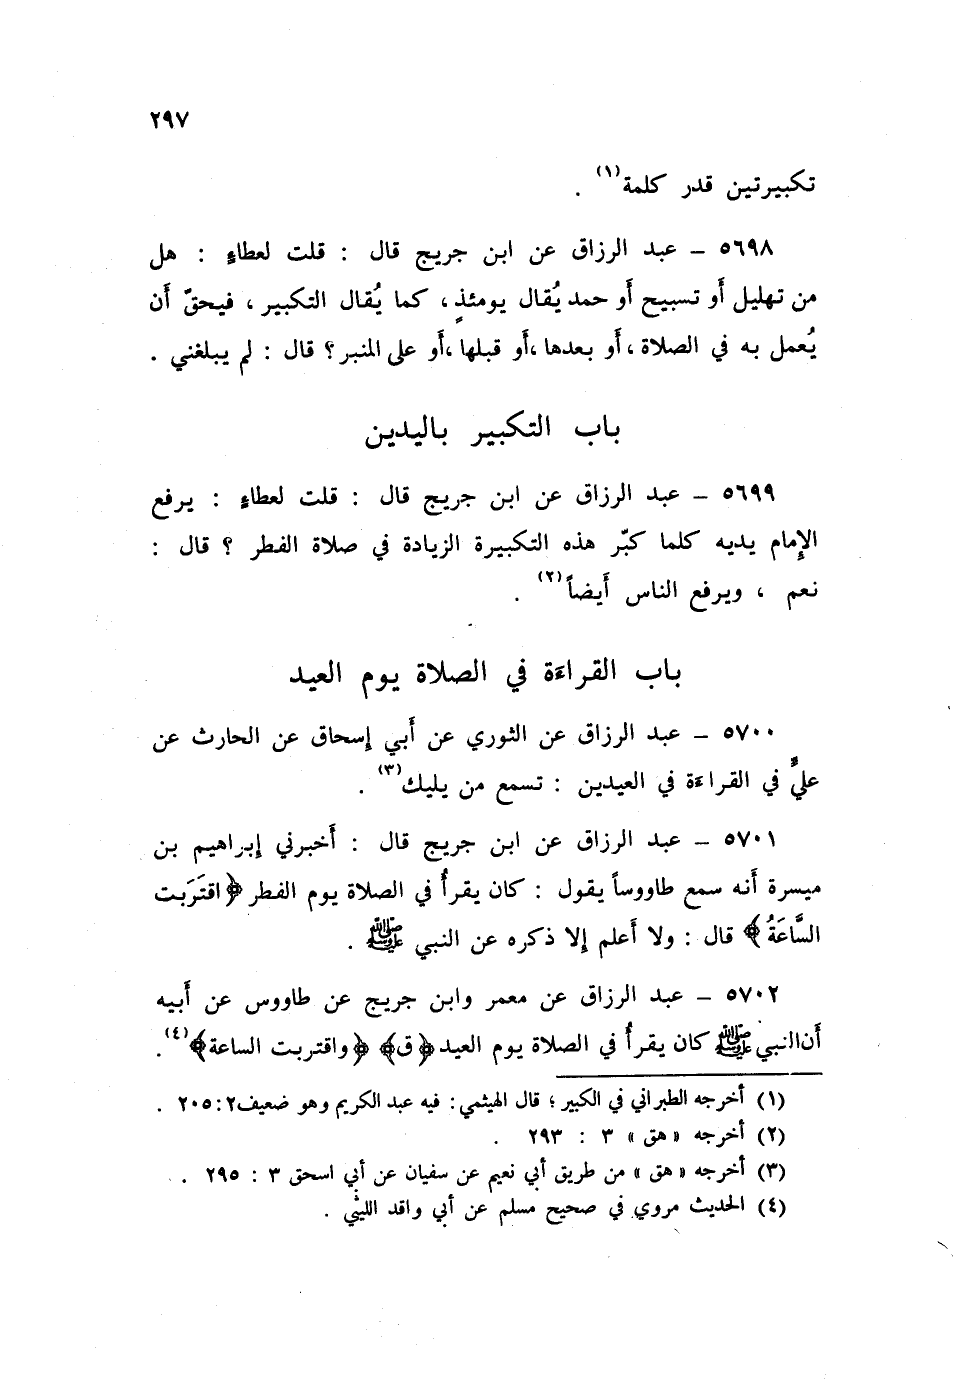 ٢٩٧
تكبيرتين قدر كلمة(١) .
٥٦٩٨ – عبد الرزاق عن ابن جريج قال : قلت لعطاءٍ : هل
من تهليل أَو تسبيح أَو حمد يُقال يومئذٍ ، كما يُقال التكبير ، فيحقّ أَن
يُعمل به في الصلاة ، أَو بعدها ،أَو قبلها ،أَو على المنبر؟ قال : لم يبلغني .
باب التكبير باليدين
٥٦٩٩ – عبد الرزاق عن ابن جريج قال : قلت لعطاءٍ : يرفع
الإِمام يديه كلما كبّر هذه التكبيرة الزيادة في صلاة الفطر ؟ قال :
نعم ، ويرفع الناس أَيضاً(٢) .
باب القراءَة في الصلاة يوم العيد
٥٧٠٠ – عبد الرزاق عن الثوري عن أَبي إِسحاق عن الحارث عن
عليٍّ في القراءَة في العيدين : تسمع من يليك(٣) .
٥٧٠١ – عبد الرزاق عن ابن جريج قال : أَخبرني إِبراهيم بن
ميسرة أَنه سمع طاووساً يقول : كان يقرأُ في الصلاة يوم الفطر ﴿اقتَرَبت
السَّاعَةُ﴾ قال : ولا أَعلم إِلا ذكره عن النبي ﷺ .
٥٧٠٢ – عبد الرزاق عن معمر وابن جريج عن طاووس عن أَبيه
أَن النبي ﷺ كان يقرأُ في الصلاة يوم العيد ﴿ق﴾ ﴿واقتربت الساعة﴾(٤) .
(١) أخرجه الطبراني في الكبير ؛ قال الهيثمي : فيه عبد الكريم وهو ضعيف ٢: ٢٠٥ .
(٢) أخرجه « هق » ٣ : ٢٩٣ .
(٣) أخرجه « هق » من طريق أبي نعيم عن سفيان عن أبي اسحق ٣ : ٢٩٥ .
(٤) الحديث مروي في صحيح مسلم عن أبي واقد الليثي .